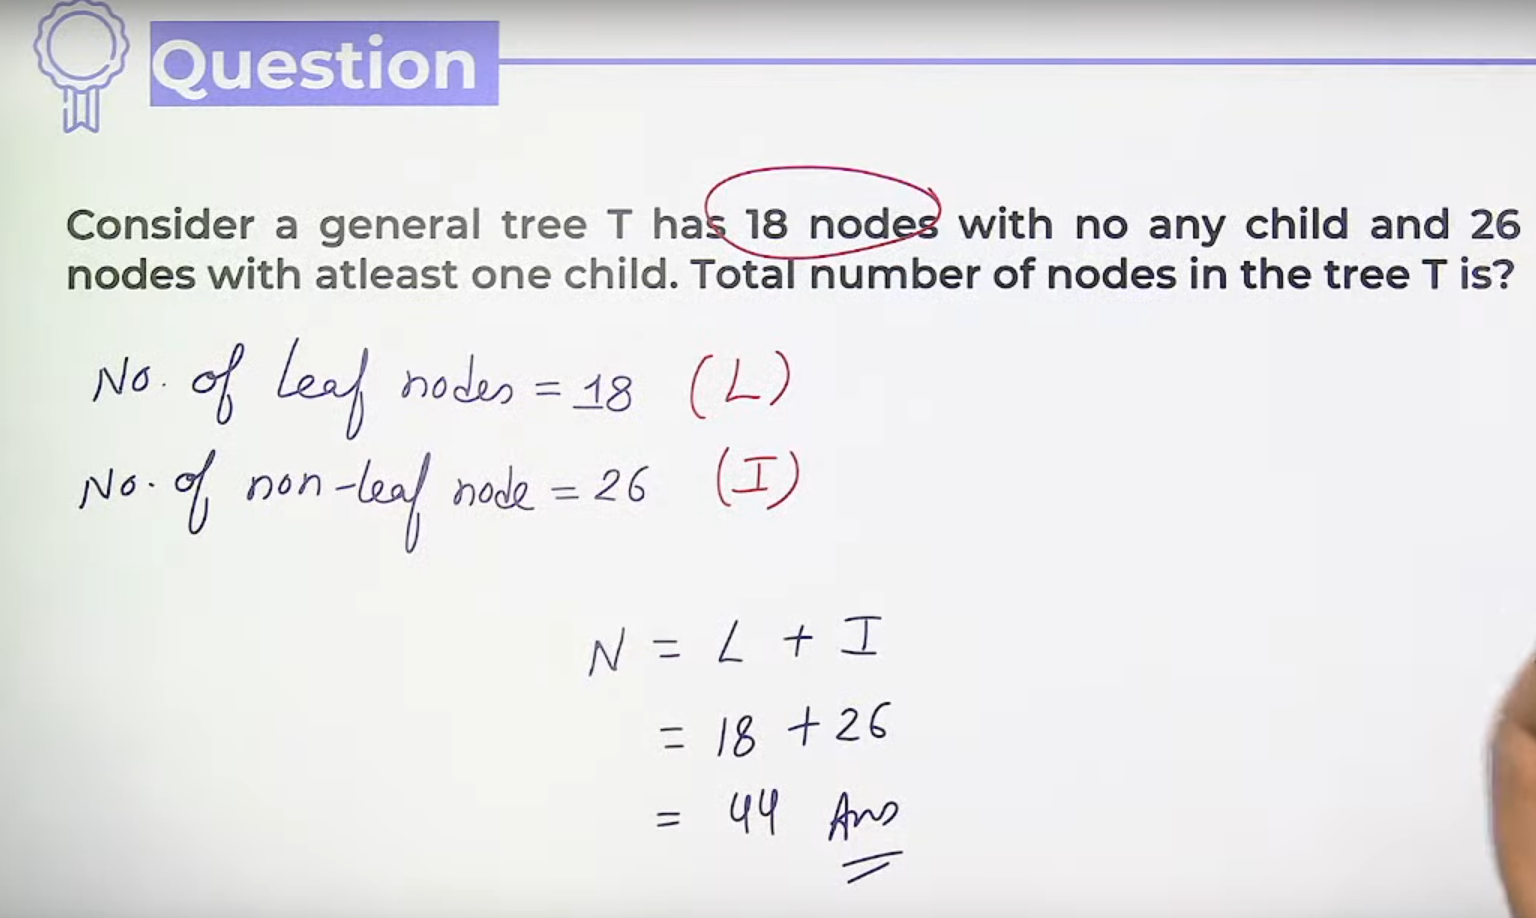 Question
Consider a general tree T has 18 nodes with no any child and 26
nodes with atleast one child. Total number of nodes in the tree T is?
No. of leaf nodes = 18 (L)
No. of non-leaf node = 26 (I)
N = L + I
= 18 + 26
= 44 Ans